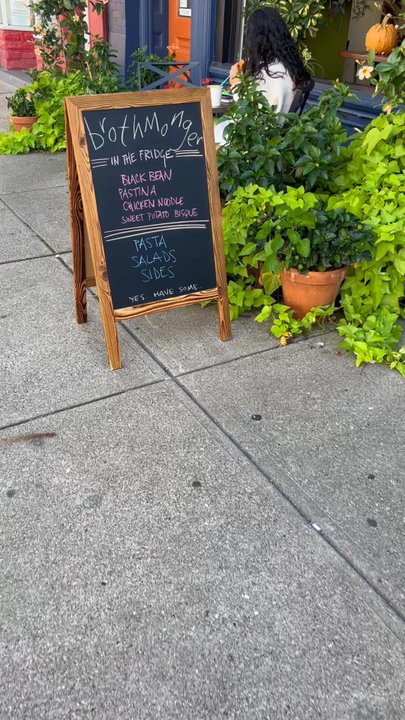 brothMonger
IN THE FRIDGE
BLACK BEAN
PASTINA
CHICKEN NOODLE
SWEET POTATO BISQUE
PASTA
SALADS
SIDES
YES. HAVE SOME.